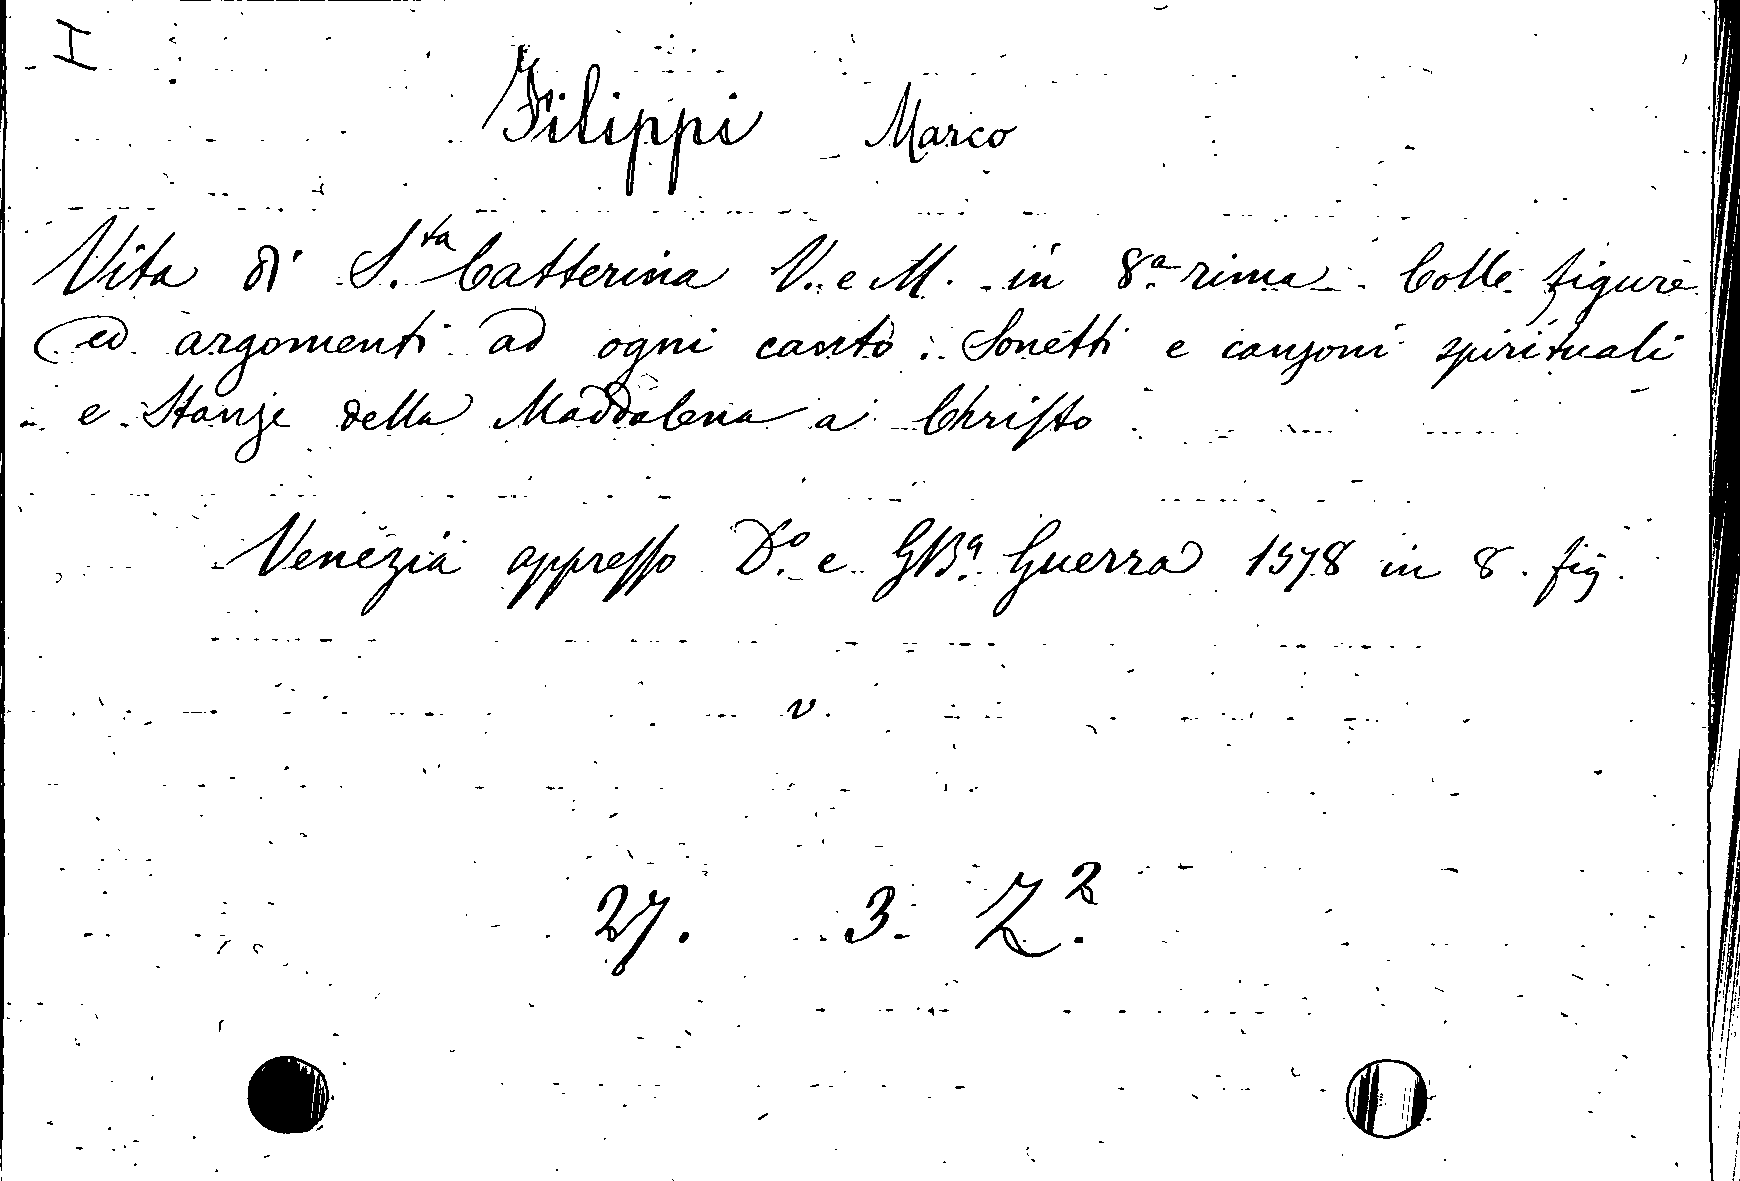 I
Filippi Marco
Vita di S.ta Catterina V. e M. in 8.a rima. Colle figure
ed argomenti ad ogni canto: Sonetti e canzoni spirituali
e Stanze della Maddalena a Christo
Venezia appresso D.o e GB.a Guerra 1578 in 8. fig.
v.
27. 3. Z.2